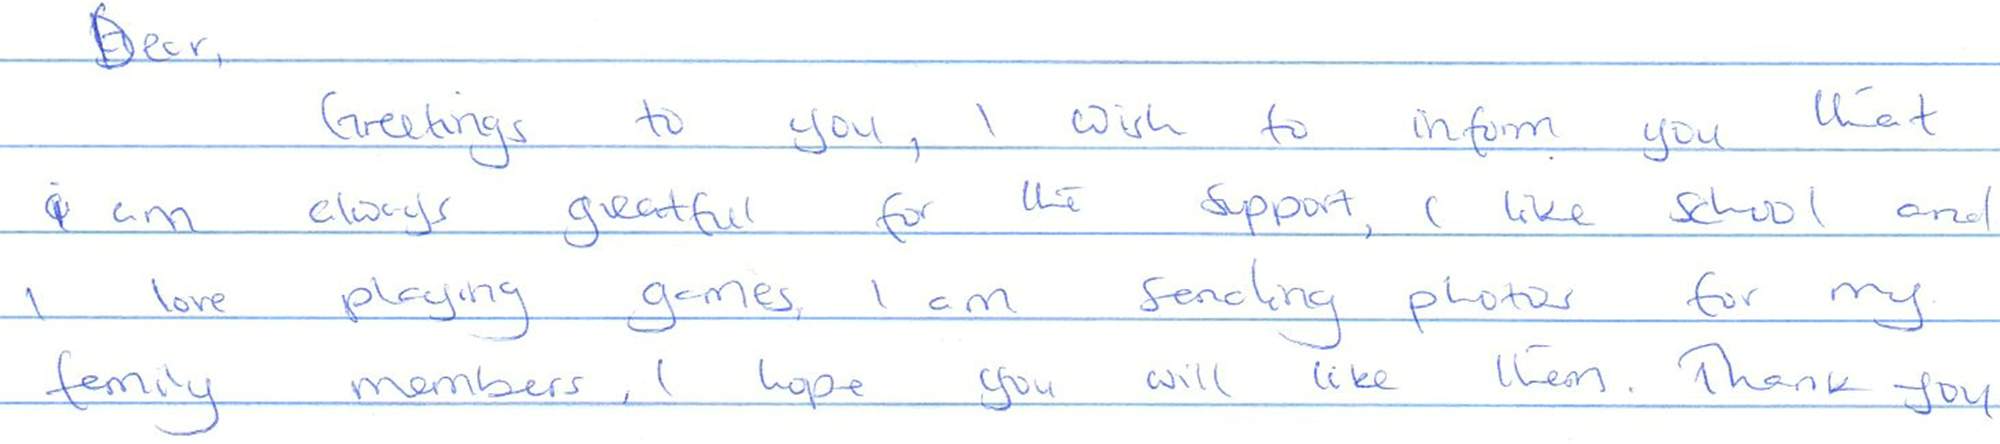 Dear,
Greetings to you, I wish to inform you that
i am always greatful for the support, I like school and
I love playing games, I am sending photos for my
family members, I hope you will like them. Thank you